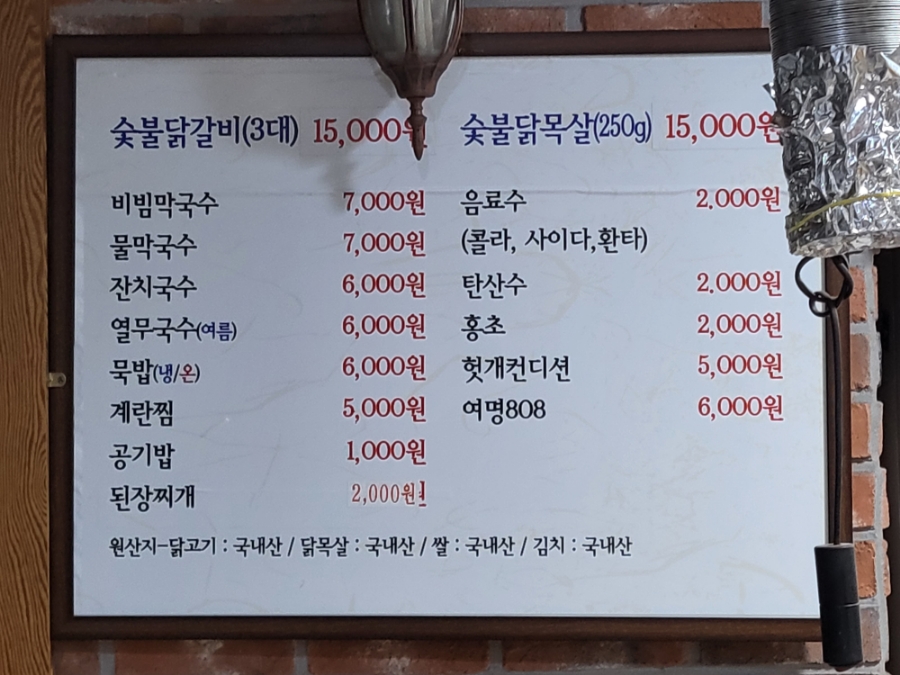 숯불닭갈비(3대) 15,000원
숯불닭목살(250g) 15,000원
비빔막국수 7,000원
물막국수 7,000원
잔치국수 6,000원
열무국수(여름) 6,000원
묵밥(냉/온) 6,000원
계란찜 5,000원
공기밥 1,000원
된장찌개 2,000원
음료수 2,000원
(콜라, 사이다,환타)
탄산수 2,000원
홍초 2,000원
헛개컨디션 5,000원
여명808 6,000원
원산지-닭고기 : 국내산 / 닭목살 : 국내산 / 쌀 : 국내산 / 김치 : 국내산